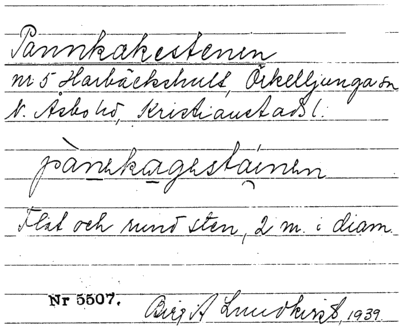 Pannkakestenen
nr 5 Harbäckshult, Örkelljunga sn
N. Åsbo hd, Kristianstads l.
pànekagestáinen
Flat och rund sten, 2 m. i diam.
Nr 5507. Birgit Lundkvist, 1939